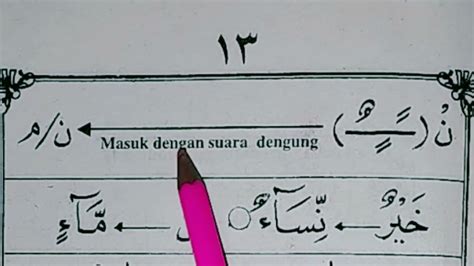 ١٣
نْ (ـًـٍـٌ) ← ن/م
Masuk dengan suara dengung
خَيْرٌ ← نِّسَآءٌ ○ ← مَّآءٍ